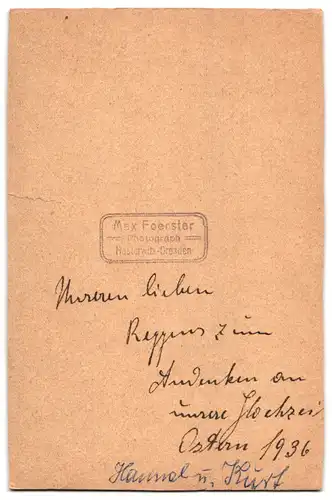 Max Foerster
Photograph
Dresden
Unseren lieben
Reppens zum
Andenken an
unsere Hochzei
Ostern 1936
Hannel u. Kurt